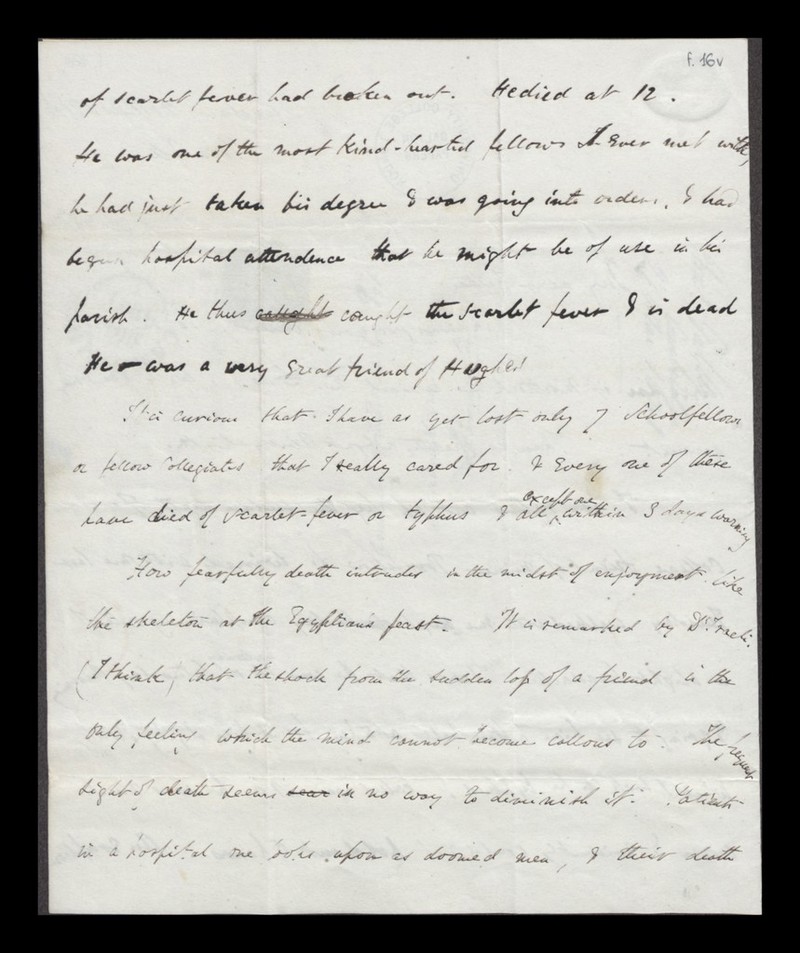 f. 16v
of scarlet fever had broken out. He died at 12.
He was one of the most kind-hearted fellows I Ever met with,
he had just taken his degree & was going into orders, & had
begun hospital attendence that he might be of use in his
parish. He thus caught caught the scarlet fever & is dead
He was a very great friend of Hughes'
It is curious that I have as yet lost only 7 Schoolfellows
or fellow Collegiates that I really cared for & Every one of these
have died of scarlet-fever or typhus & all except one within 3 days warning
How fearfully death intrudes in the midst of enjoyment like
the skeleton at the Egyptians feast. It is remarked by D'Israeli.
(I think) that the shock from the sudden loss of a friend is the
only feeling which the mind cannot become callous to. The frequent
sight of death seems in no way to diminish it. Patients
in a hospital one looks upon as doomed men, & their death